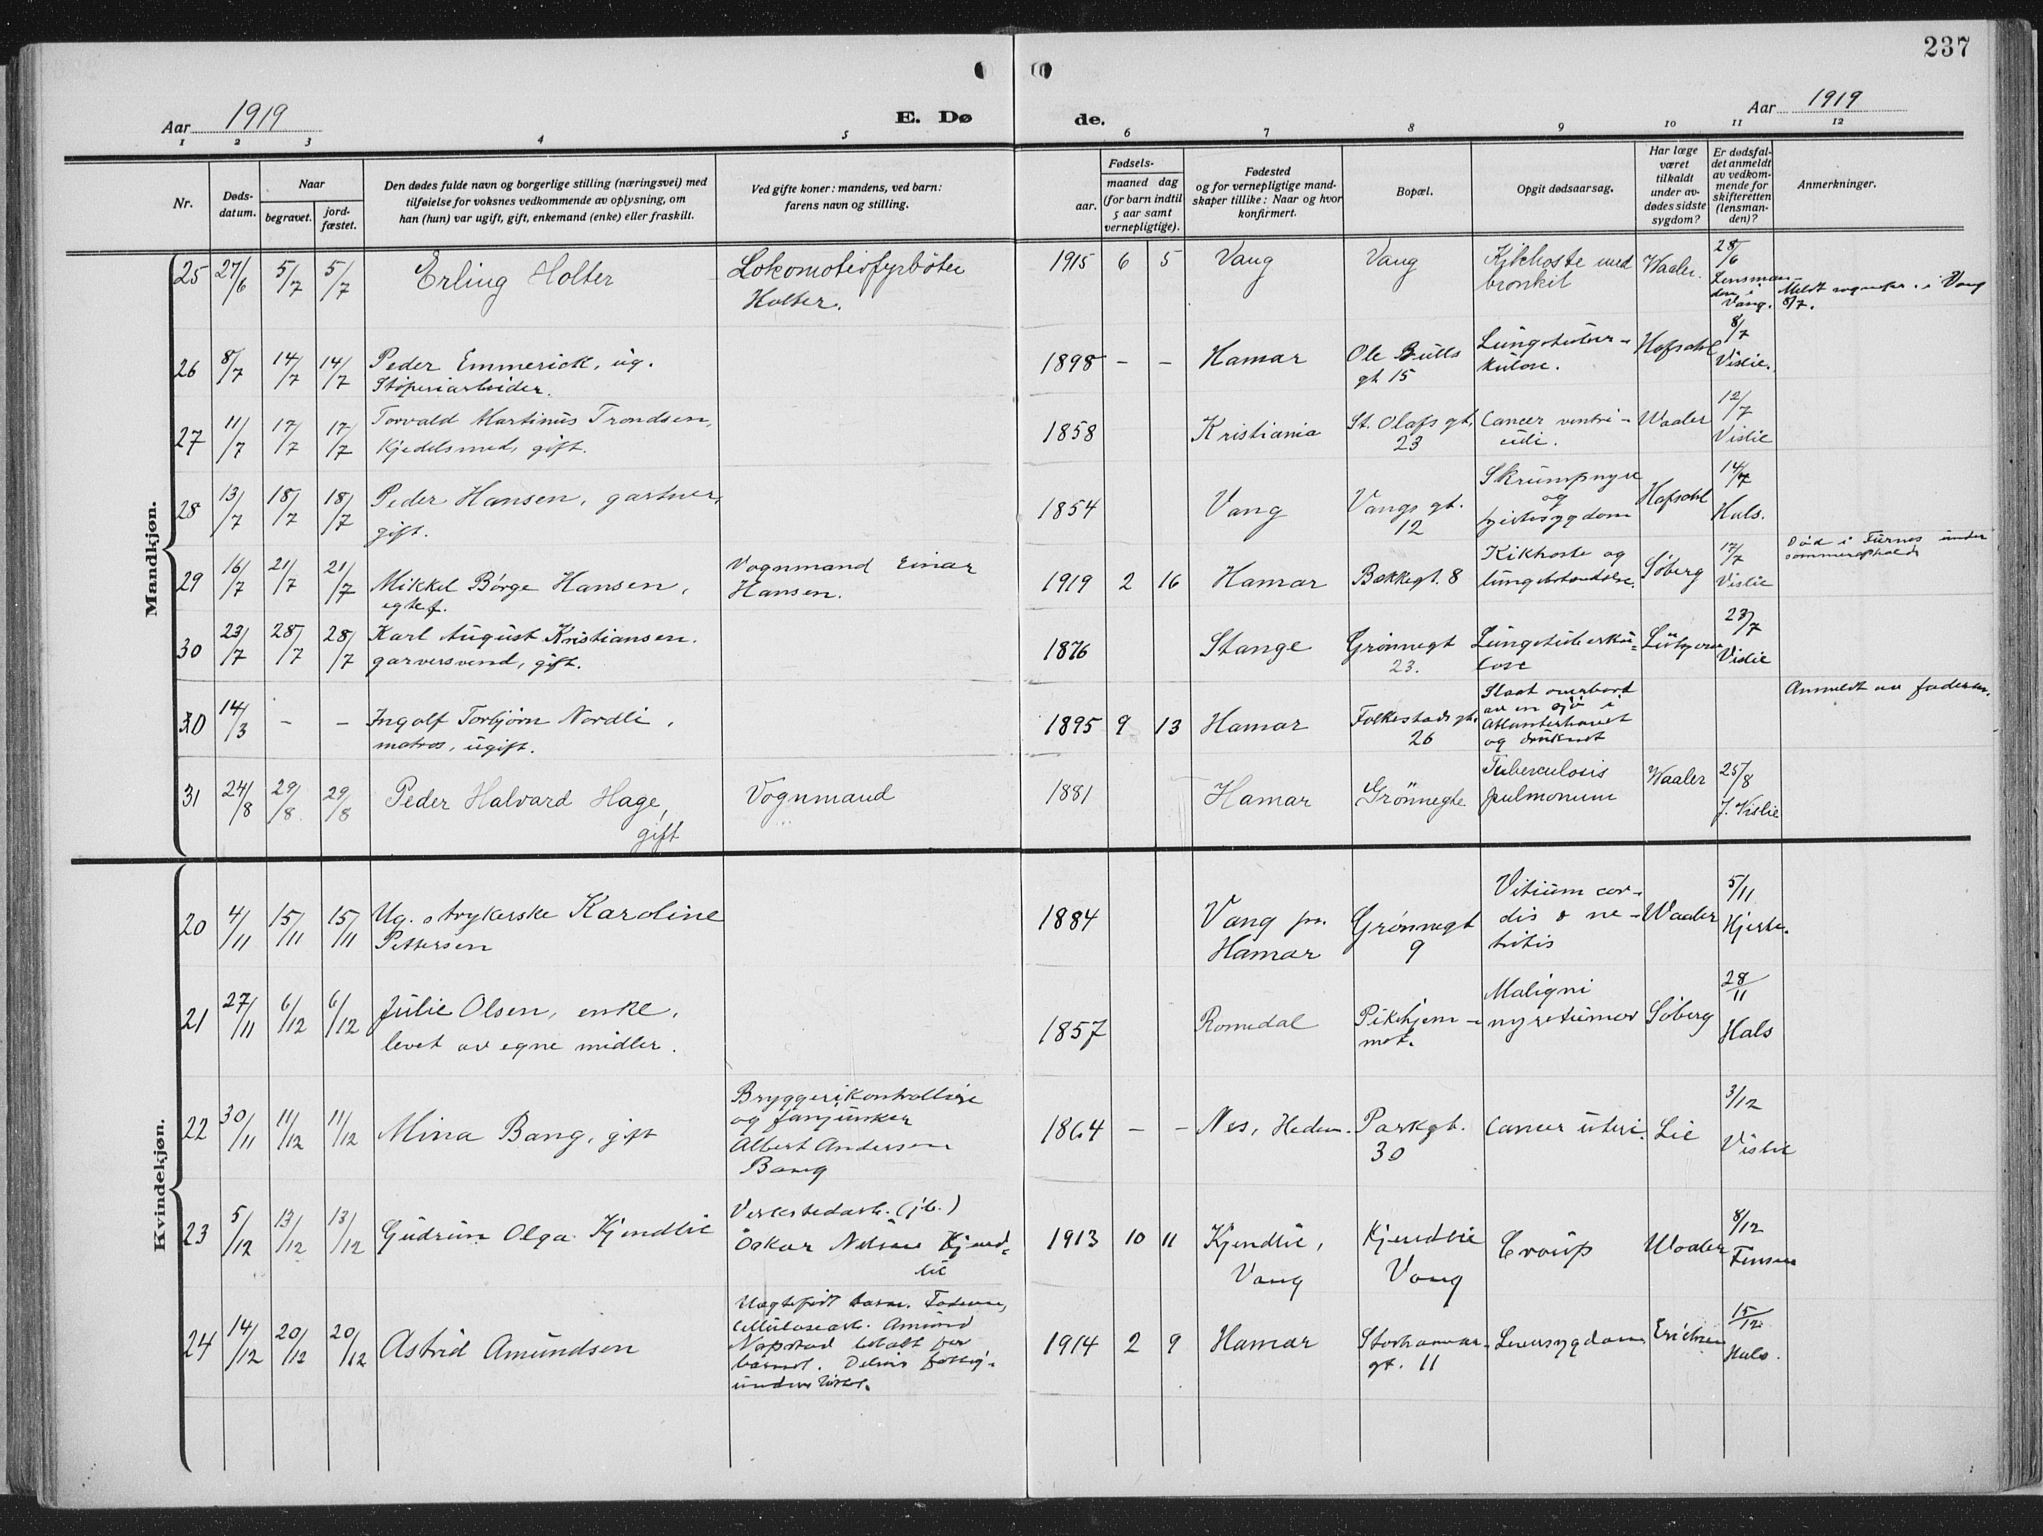 237
Aar 1919
E. Dø
de.
Aar 1919
1 2 3 4 5 6 7 8 9 10 11 12
Nr.
Døds-
datum.
Naar
begravet.
jord-
fæstet.
Den dødes fulde navn og borgerlige stilling (næringsvei) med
tilføielse for voksnes vedkommende av oplysning, om
han (hun) var ugift, gift, enkemand (enke) eller fraskilt.
Ved gifte koner: mandens, ved barn:
farens navn og stilling.
Fødsels-
aar.
maaned dag
(for barn indtil
5 aar samt
vernepligtige).
Fødested
og for vernepligtige mand-
skaper tillike: Naar og hvor
konfirmert.
Bopæl.
Opgit dødsaarsag.
Har læge
været
tilkaldt
under av-
dødes sidste
sygdom?
Er dødsfal-
det anmeldt
av vedkom-
mende for
skifteretten
(lensman-
den)?
Anmerkninger.
Mandkjøn.
25 27/6 5/7 5/7 Erling Holter
Lokomotivfyrbøter
Holter.
1915 6 5 Vang Vang
Kikhoste med
bronkit
Waaler.
28/6
Lensman-
den i
Vang.
Meldt sognepr. i Vang
8/7.
26 8/7 14/7 14/7 Peder Emmerick, ug.
Støperiarbeider.
1898 – – Hamar
Ole Bulls
gt 15
Lungetuber-
kulose.
Hofsahl
8/7
Vislie.
27 11/7 17/7 17/7 Torvald Martinus Trondsen,
Kjedelsmed, gift.
1858 Kristiania
St. Olafs gt.
23
Cancer ventri-
culi.
Waaler
12/7
Vislie
28 13/7 18/7 18/7 Peder Hansen, gartner,
gift.
1854 Vang
Vangs gt.
12
Skrumpnyre
og
Hofsahl
14/7
Hals.
29 16/7 21/7 21/7 Mikkel Børge Hansen,
egtef.
Vognmand Einar
Hansen.
1919 2 16 Hamar Bakkegt. 8
Kikhoste og
lungebetændelse.
Søberg
17/7
Vislie
Død i Furnes under
sommerophold
30 23/7 28/7 28/7 Karl August Kristiansen.
garversvend, gift.
1876 Stange
Grønnegt
23.
Lungetuberku-
lose
23/7
Vislie
30 14/3 – – Ingolf Torbjørn Nordli,
matros, ugift.
1895 9 13 Hamar
Folkestads gt.
26
Slaat overbord
av en sjø i
Atlanterhavet
og druknet
Anmeldt av faderen.
31 24/8 29/8 29/8 Peder Halvard Hage,
gift
Vognmand
1881 Hamar Grønnegte
Tuberculosis
pulmonum
Waaler
25/8
J. Vislie
Kvindekjøn.
20 4/11 15/11 15/11 Ug. strykerske Karoline
Pettersen
1884
Vang pr.
Hamar
Grønnegt
9
Vitium cor-
dis & ne-
Waaler
5/11
21 27/11 6/12 6/12 Julie Olsen, enke,
levet av egne midler.
1857 Romedal
Pikehjem-
met.
Maligni
nyretumor
Søberg
28/11
Hals
22 30/11 11/12 11/12 Mina Bang, gift
Bryggerikontrollør
og fanejunker
Albert Andersen
Bang
1864 – – Nes, Hedem.
Parkgt.
30
Cancer uteri. Lie
3/12
Vislie
23 5/12 13/12 13/12 Gudrun Olga Kjendlie
Verkstedarb. (jb.)
Oskar Nilsen Kjend-
lie
1913 10 11
Kjendlie,
Vang
Kjendlie
Vang
Croup
Waaler
8/12
24 14/12 20/12 20/12 Astrid Amundsen
Uegtefødt barn. Faderen,
Cellulosearb. Amund
betalt for
barnet. Delvis fattig-
understøttet.
1914 2 9 Hamar
Storhamar-
gt. 11
Leversygdom Erichsen
15/12
Hals.